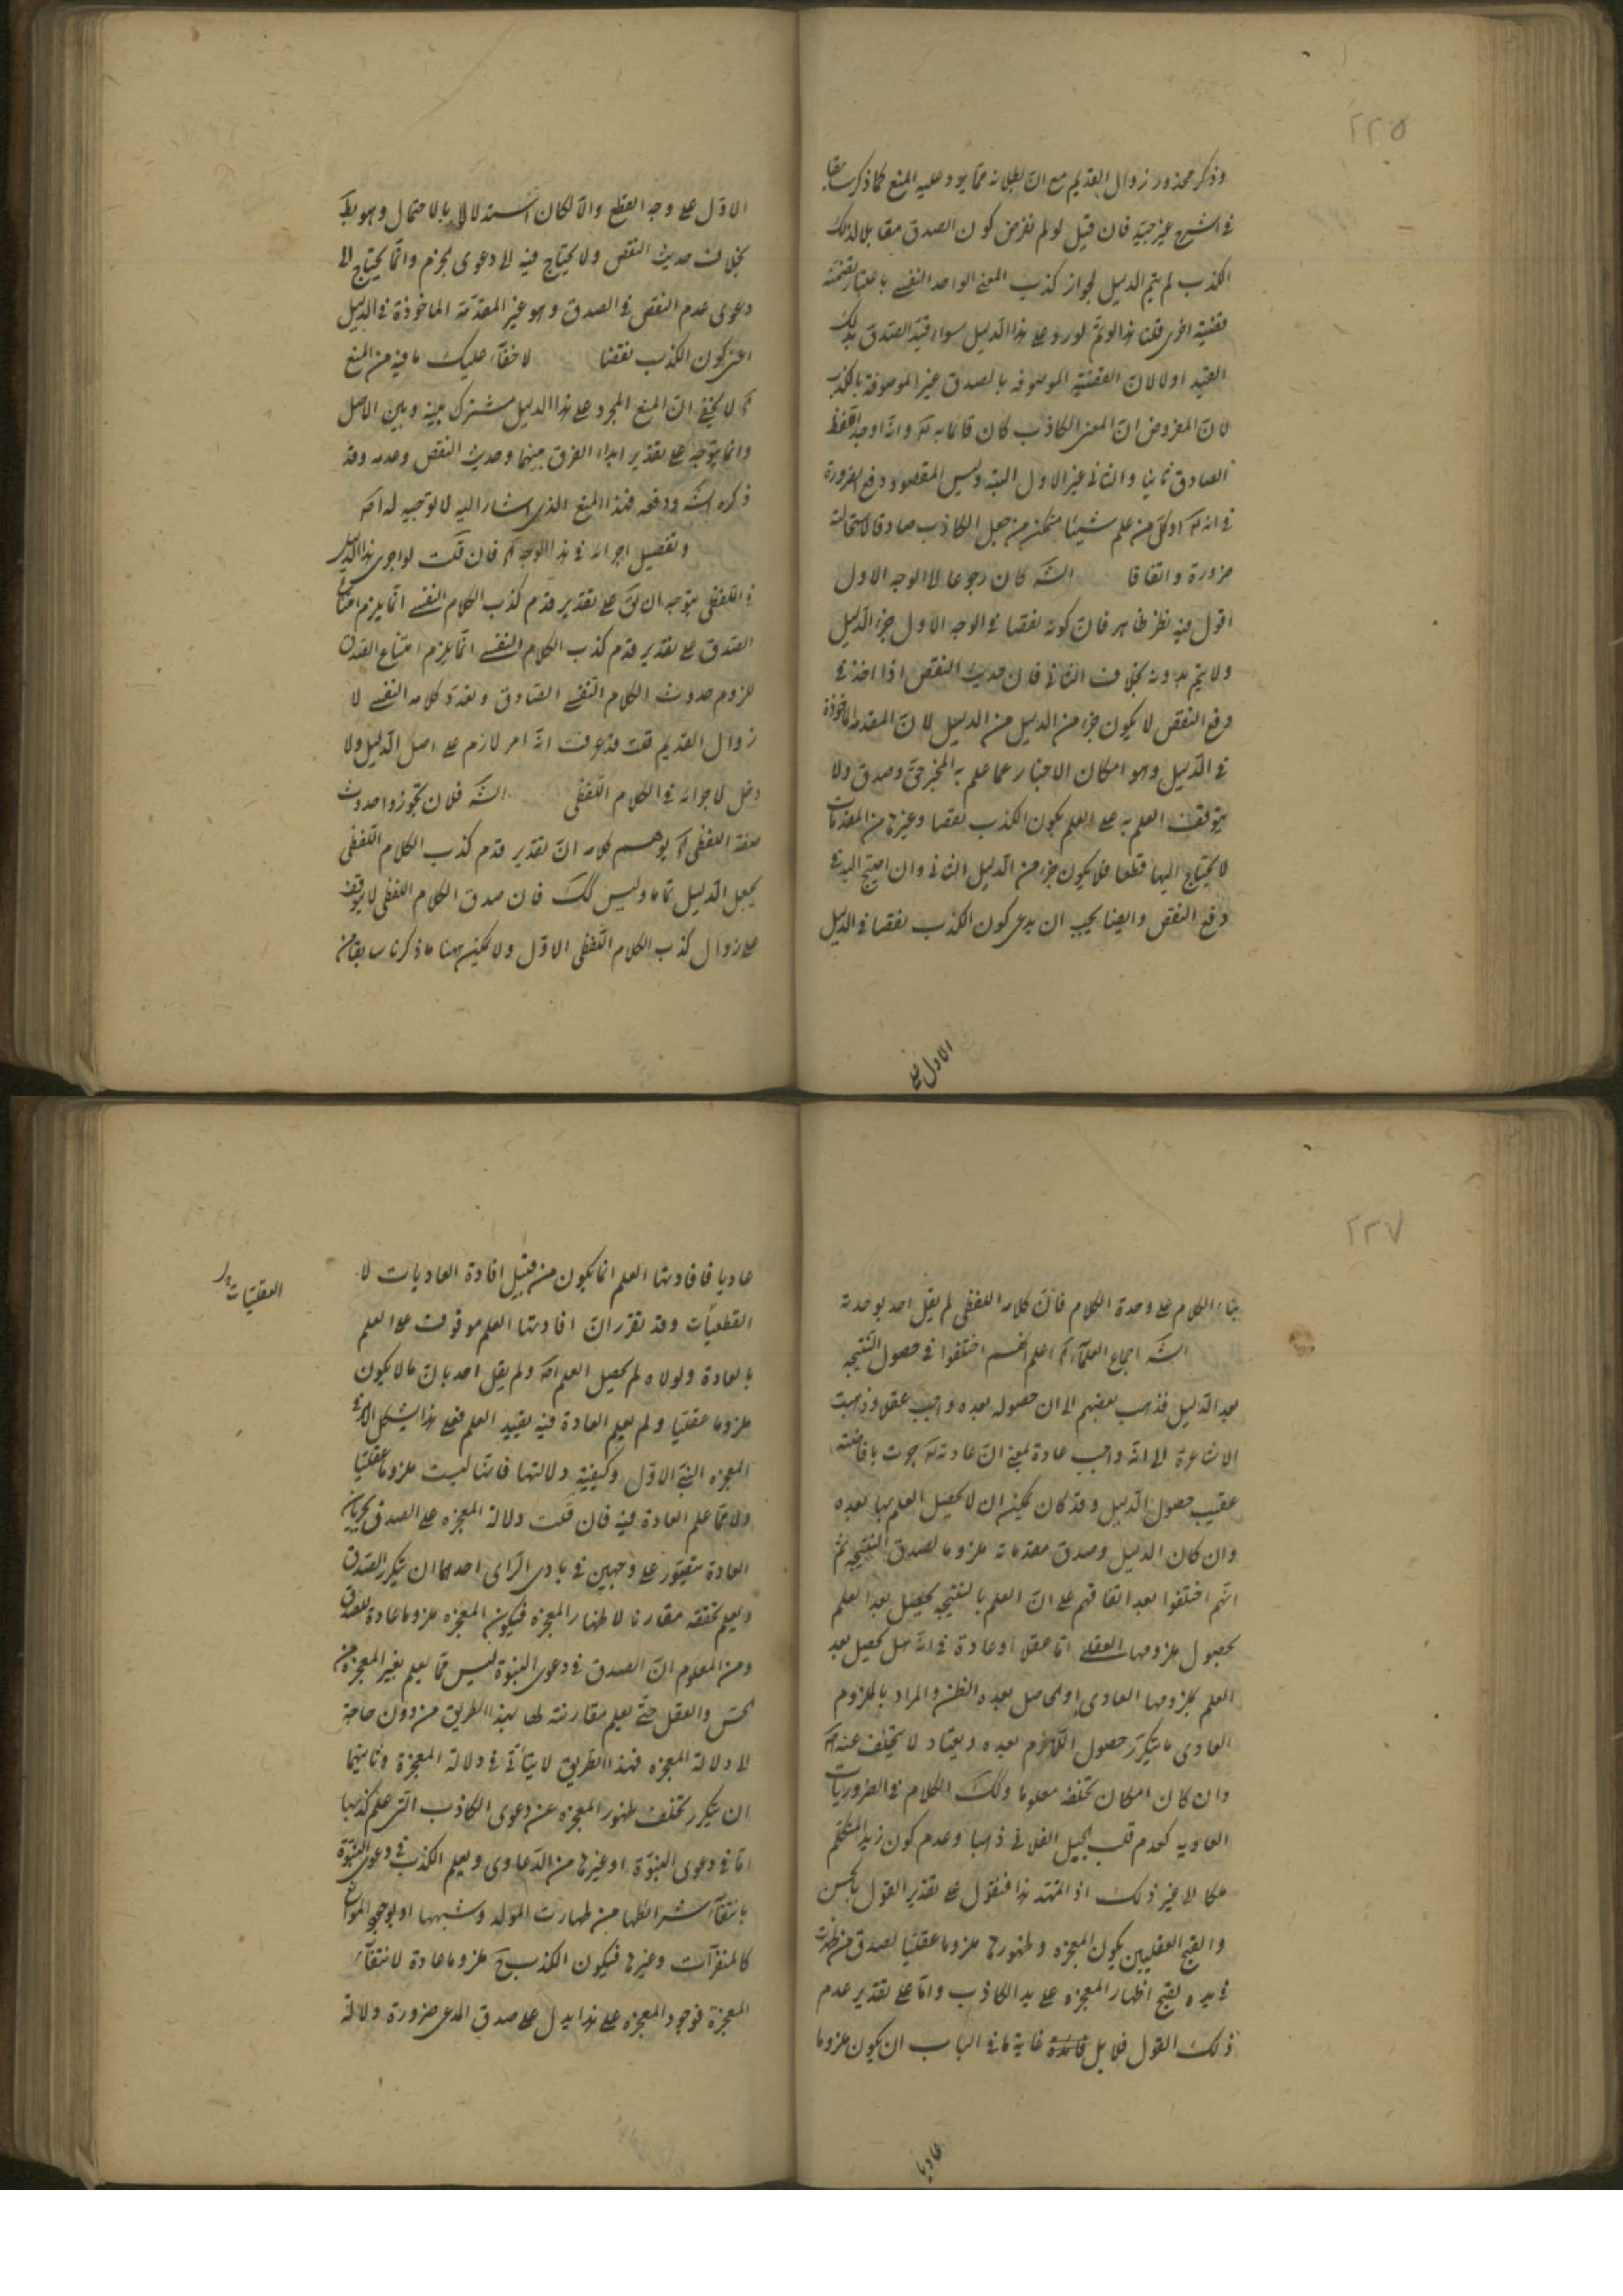 ٢٢٥
وذكر محذور زوال القديم مع ان بطلانه مما يرد عليه المنع كما ذكر سابقا
في الشرح غير جيد فان قيل لو لم نفرض كون الصدق مقابلا لذلك
الكذب لم يتم الدليل لجواز كذب المعنى الواحد النفسى باعتبار تضمنه
قضية اخرى قلنا هذا لو تم لورد على هذا الدليل سواء قيد الصدق بذلك
القيد اولا لان القضية الموصوفه بالصدق غير الموصوفة بالكذب
لان المفروض ان المعنى الكاذب كان قائما به تع وانه اوجد اللفظ
الصادق ثانيا والثانى غير الاول البتة وليس المقصود دفع الضرورة
في انه تع او كل من علم شيئا متمكن من جعل الكاذب صادقا لاستحالته
ضرورة واتفاقا الشه كان رجوعا الى الوجه الاول
اقول فيه نظر ظاهر فان كونه نقصا في الوجه الاول جزء الدليل
ولا يتم بدونه بخلاف الثانى فان حديث النقص اذا اخذ في
دفع النقض لا يكون جزء من الدليل من الدليل لان المقدمه الماخوذة
في الدليل وهو امكان الاخبار عما علم به المخبر حق وصدق ولا
يتوقف العلم به على العلم بكون الكذب نقصا وغيره من المقدمات
لا يحتاج اليها قطعا فلا يكون جزء من الدليل الثانى وان احتيج اليه في
دفع النقض وايضا يجب ان يدعى كون الكذب نقصا في الدليل
الاول على
الاول على وجه القطع والا لكان استدلالا بالاحتمال وهو بط
بخلاف حديث النقض ولا يحتاج فيه الى دعوى بجزم وانما يحتاج الى
دعوى عدم النقص في الصدق وهو غير المقدمة الماخوذة في الدليل
اعنى كون الكذب نقصا لا خفاء عليك ما فيه من المنع
ثم لا يخفى ان المنع المجرد على هذا الدليل مشترك بينه وبين الاصل
وانما يتوجه على تقدير ابداء الفرق بينهما وحديث النقص وعدمه وقد
ذكره الشه ودفعه فهذا المنع الذى اشار اليه لا توجيه له اصه
وتفصيل اجرائه في هذا الوجه اه فان قلت لو اجرى هذا الدليل
في اللفظى يتوجه ان يق على تقدير قدم كذب الكلام النفسى انما يلزم امتناع
الصدق على تقدير قدم كذب الكلام النفسى انما يلزم امتناع الصدق
للزوم حدوث الكلام النفسى الصادق وتعدد كلامه النفسى لا
زوال القديم قلت قد عرفت انه امر لازم على اصل الدليل ولا
دخل لاجرائه في الكلام اللفظى الشه فلان تجوزوا حدوث
صفة اللفظى اه يوهم كلامه ان تقدير قدم كذب الكلام اللفظى
يجعل الدليل تاما وليس كك فان صدق الكلام اللفظى لا يتوقف
على زوال كذب الكلام اللفظى الاول ولا يمكن ههنا ما ذكرنا سابقا من
٢٢٧
بناء الكلام على وحدة الكلام فان كلامه اللفظى لم يقل احد بوحدته
الشه اجماع العلماء اه اعلم انهم اختلفوا في حصول النتيجه
بعد الدليل فذهب بعضهم الى ان حصوله بعده واجب عقلا وذهبت
الاشاعرة الى انه واجب عادة بمعنى ان عادته تع جرت بافاضته
عقيب حصول الدليل وقد كان يمكن ان لا يحصل العلم بها بعده
وان كان الدليل وصدق مقدماته ملزوما لصدق النتيجه ثم
انهم اختلفوا بعد اتفاقهم على ان العلم بالنتيجه يحصل بعد العلم
بحصول ملزومها العقلى اما عقلا او عادة في انه هل يحصل بعد
العلم بملزومها العادى او الحاصل بعده الظن والمراد بالملزوم
العادى ما يتكرر حصول اللازم بعده ويعتاد لا يتخلف عنه اصه
وان كان امكان تخلفه معلوما وكك الكلام في الضروريات
العاديه كعدم قلب الجبل الفلانى ذهبا وعدم كون زيد المتكلم
ملكا الى غير ذلك اذا تمهد هذا فنقول على تقدير القول بالحسن
والقبح العقليين يكون المعجزه وظهورها ملزوما عقليا لصدق من ظهرت
في يده لقبح اظهار المعجزه على يد الكاذب واما على تقدير عدم
ذلك القول فلا بل غاية ما في الباب ان يكون ملزوما
عاديا
عاديا فافادتها العلم انما يكون من قبيل افادة العاديات لا
العقليات
القطعيات وقد تقرر ان افادتها العلم موقوف على العلم
بالعادة ولولاه لم يحصل العلم اصه ولم يقل احد بان ما لا يكون
ملزوما عقليا ولم يعلم العادة فيه يفيد العلم فعلى هذا يشكل الامر في
المعجزه النبى الاول وكيفية دلالتها فانها ليست ملزوما عقليا
ولا مما علم العادة فيه فان قلت دلالة المعجزه على الصدق بجريان
العادة متصور على وجهين في بادى الراى احدهما ان يتكرر الصدق
ويعلم تحققه مقارنا لاظهار المعجزه فيكون المعجزه ملزوما عادة للصدق
ومن المعلوم ان الصدق في دعوى النبوة ليس مما يعلم بغير المعجزه من
الحس والعقل حتى يعلم مقارنته لها بهذا الطريق من دون حاجة
الى دلالة المعجزه فهذا الطريق لا يتأتى في دلالة المعجزة وثانيهما
ان يتكرر تخلف ظهور المعجزه عن دعوى الكاذب التى علم كذبها
اما في دعوى النبوة او غيرها من الدعاوى ويعلم الكذب في دعوى النبوة
بانتفاء شرائطها من طهارت المولد وشبهها او بوجود الموانع
كالمنفرات وغيرها فيكون الكذب ح ملزوما عادة لانتفاء
المعجزة فوجود المعجزه على هذا يدل على صدق المدعى ضرورة دلالة